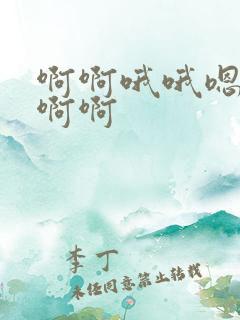 啊啊哦哦嗯
啊啊
李丁
未经同意禁止转载